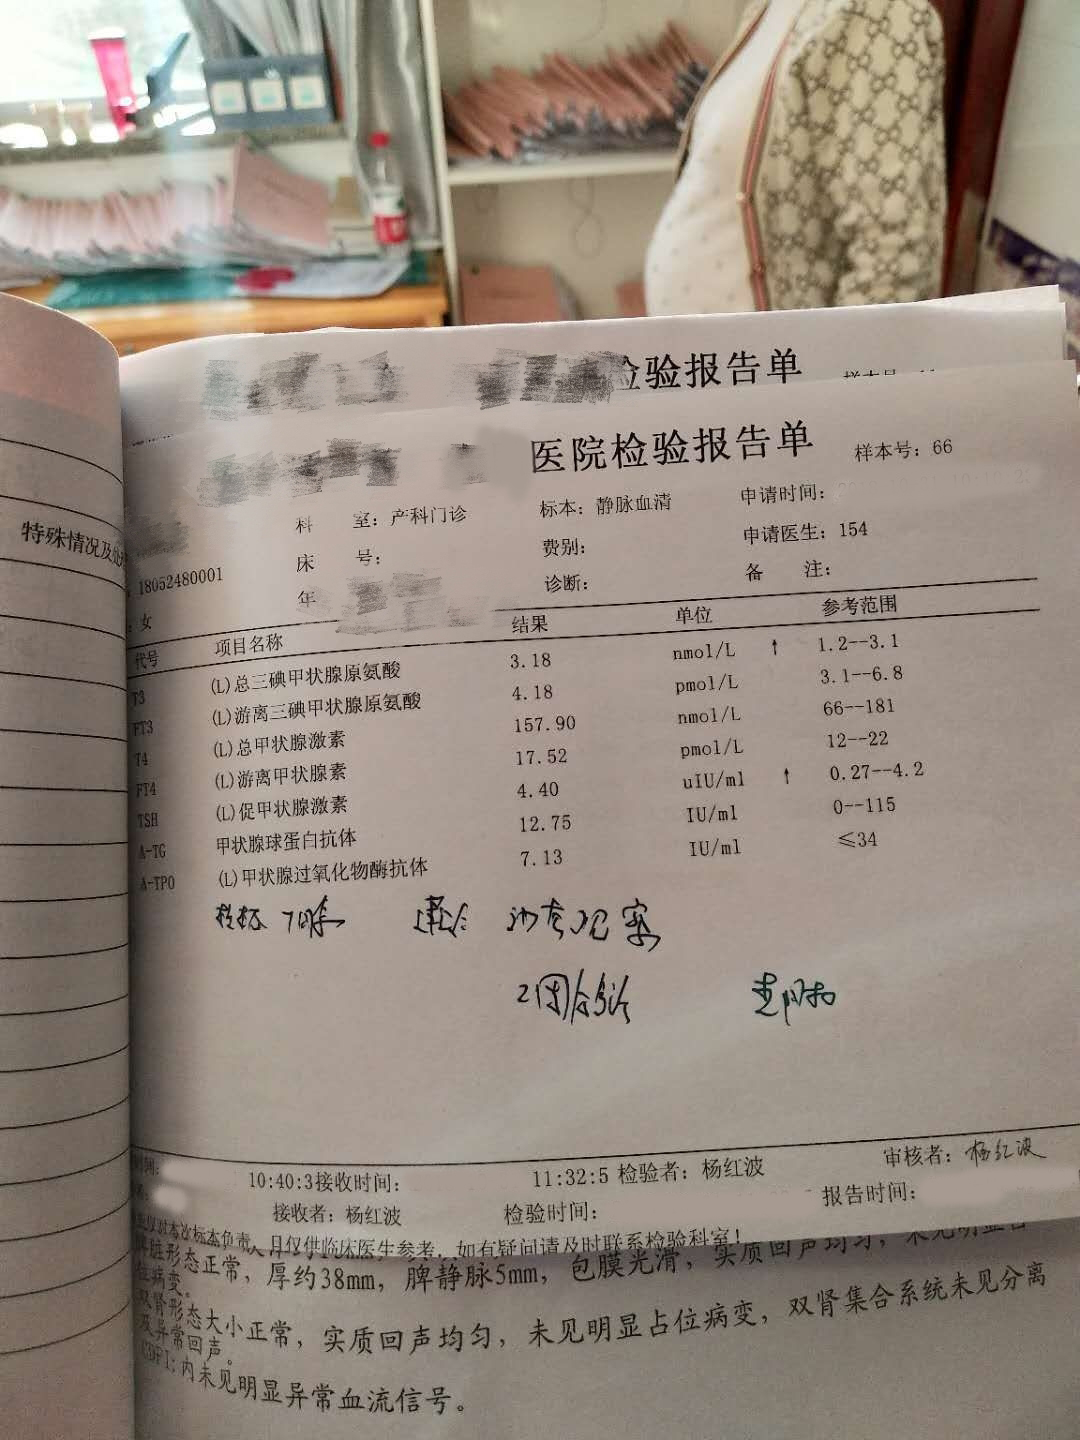 检验报告单
医院检验报告单
样本号: 66
科 室: 产科门诊
标本: 静脉血清
申请时间:
特殊情况及处
18052480001
床 号:
费别:
申请医生: 154
女
年
诊断:
备 注:
代号 项目名称 结果 单位 参考范围
T3 (L)总三碘甲状腺原氨酸 3.18 nmol/L ↑ 1.2--3.1
FT3 (L)游离三碘甲状腺原氨酸 4.18 pmol/L 3.1--6.8
T4 (L)总甲状腺激素 157.90 nmol/L 66--181
FT4 (L)游离甲状腺素 17.52 pmol/L 12--22
TSH (L)促甲状腺激素 4.40 uIU/ml ↑ 0.27--4.2
A-TG 甲状腺球蛋白抗体 12.75 IU/ml 0--115
A-TPO (L)甲状腺过氧化物酶抗体 7.13 IU/ml ≤34
观察
2周后
10:40:3 接收时间: 11:32:5 检验者: 杨红波 审核者: 杨红波
接收者: 杨红波 检验时间: 报告时间:
仅对本次标本负责, 且仅供临床医生参考, 如有疑问请及时联系检验科室!
脾脏形态正常, 厚约38mm, 脾静脉5mm, 包膜光滑, 实质回声均匀, 未见明显占
位病变。
双肾形态大小正常, 实质回声均匀, 未见明显占位病变, 双肾集合系统未见分离
及异常回声。
CDFI: 内未见明显异常血流信号。